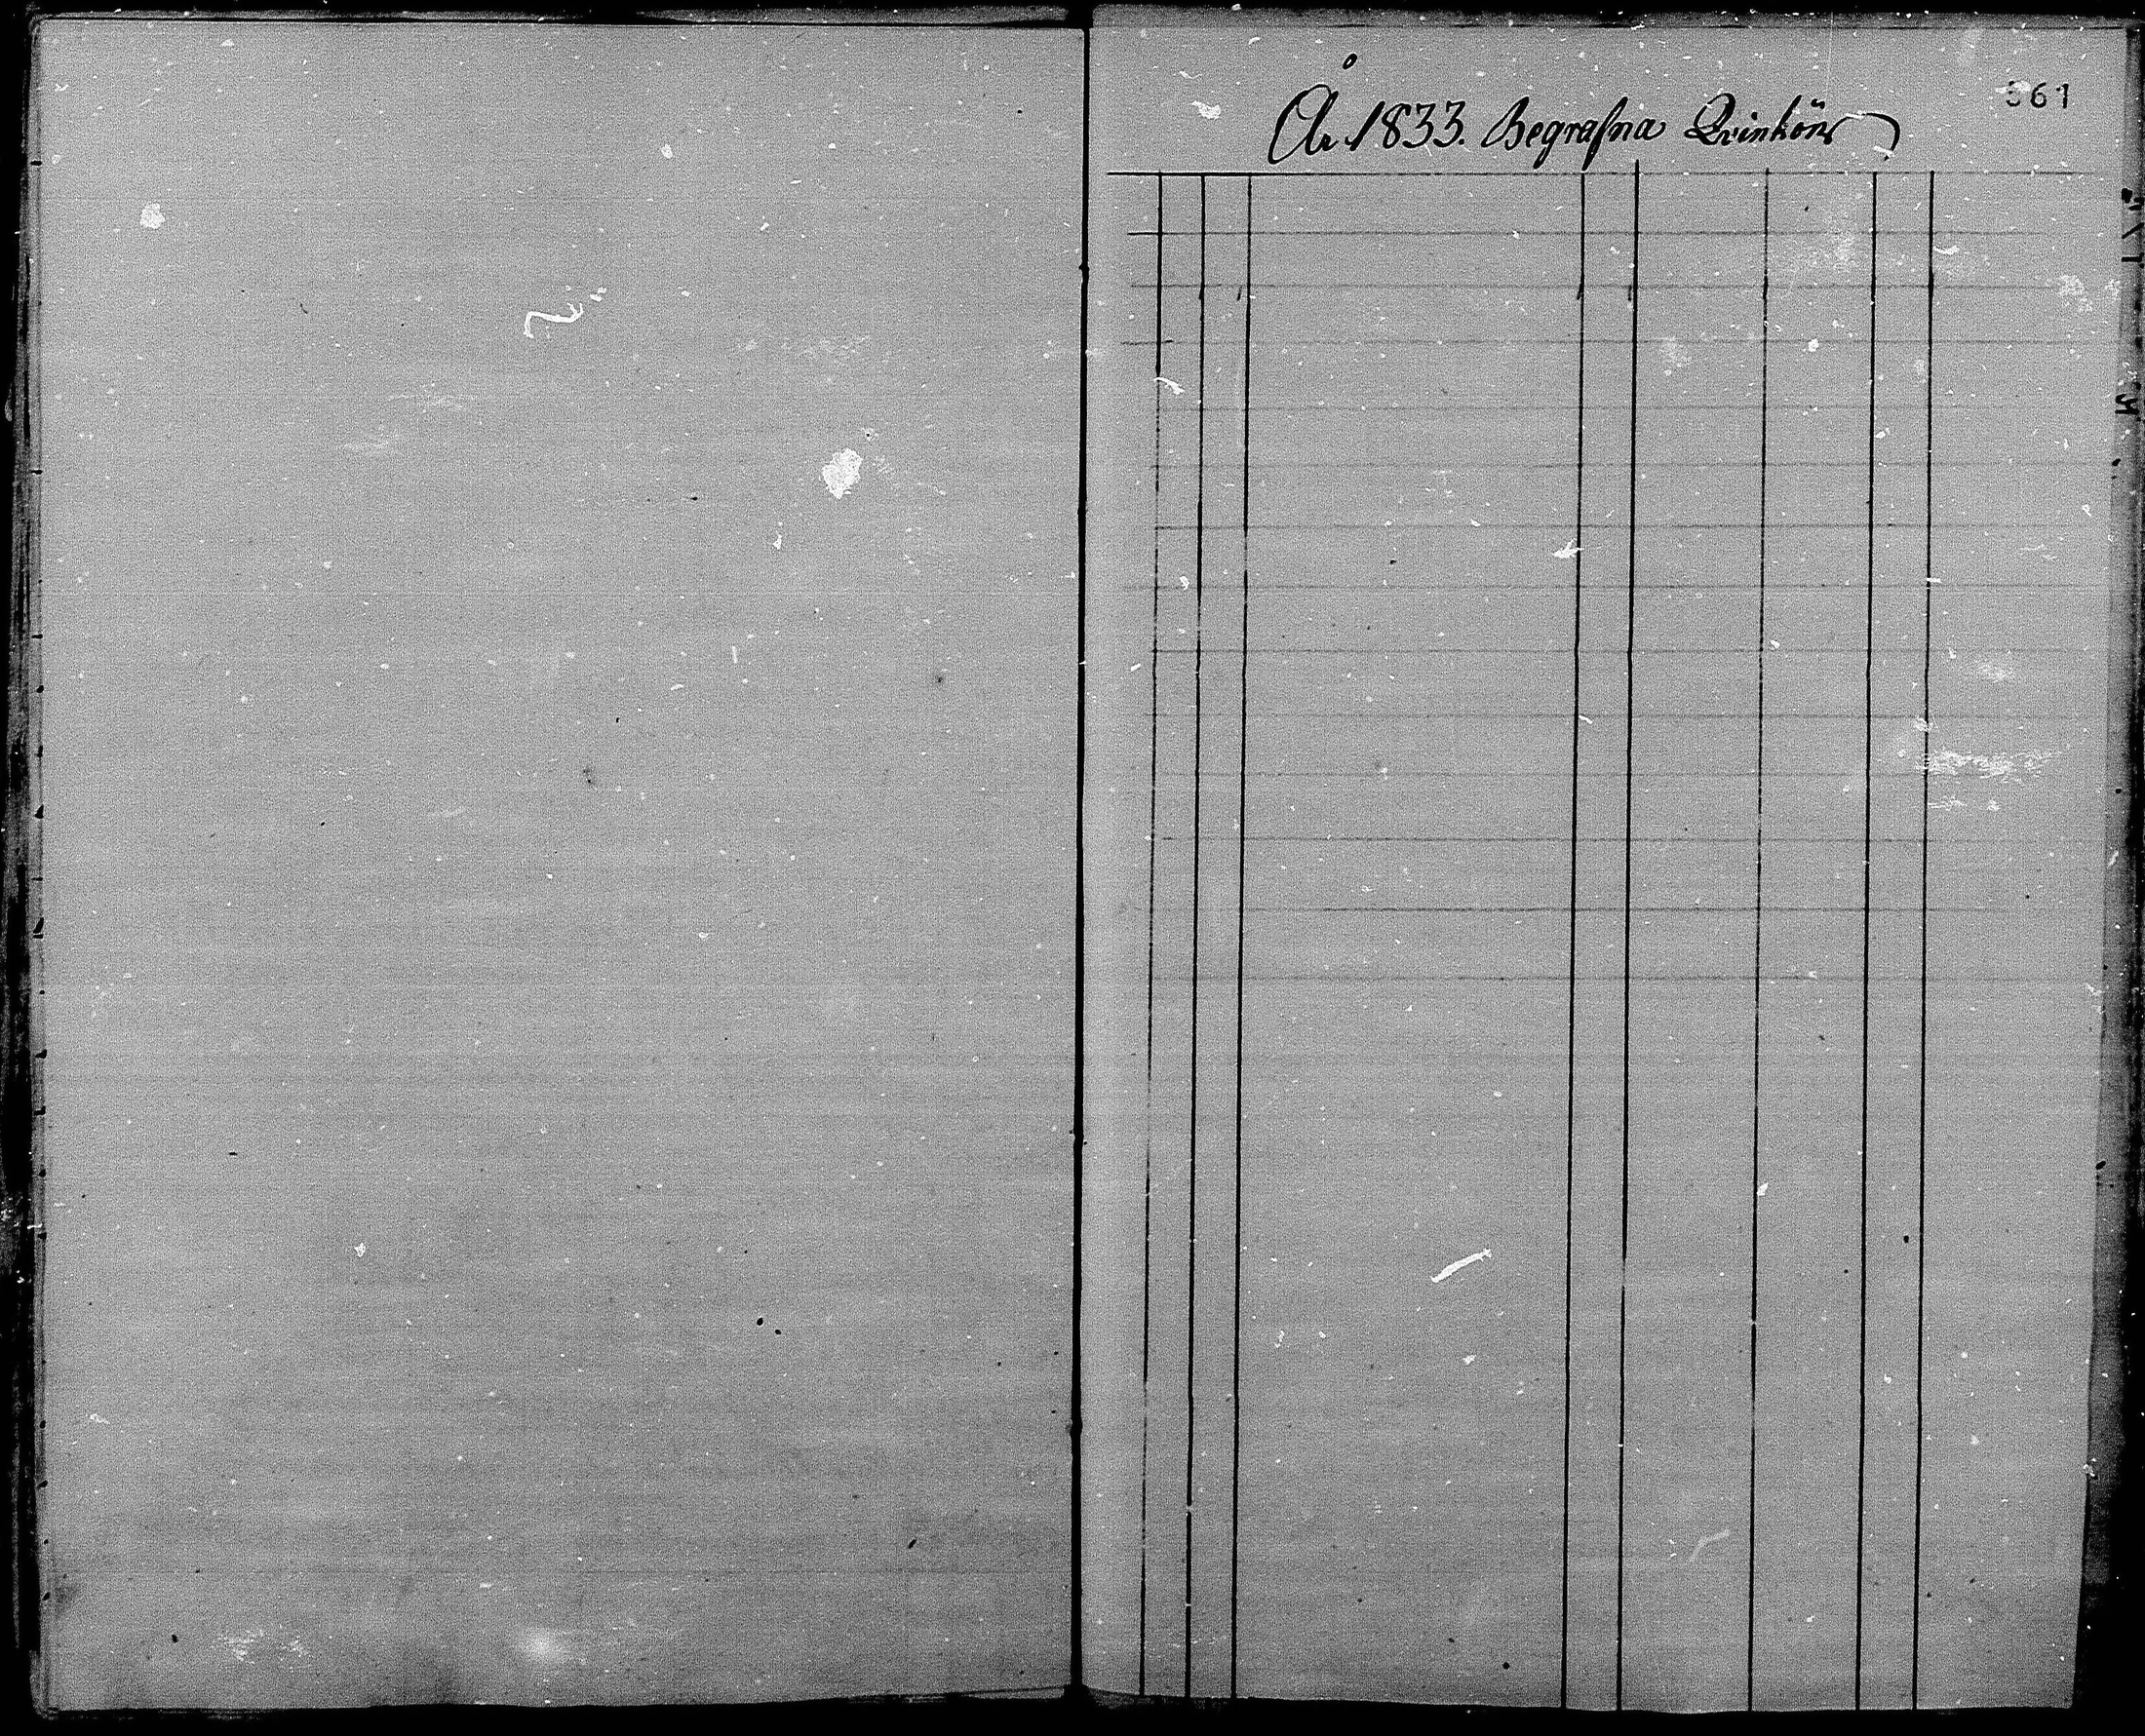 År 1833. Begrafna Qvinkön
561